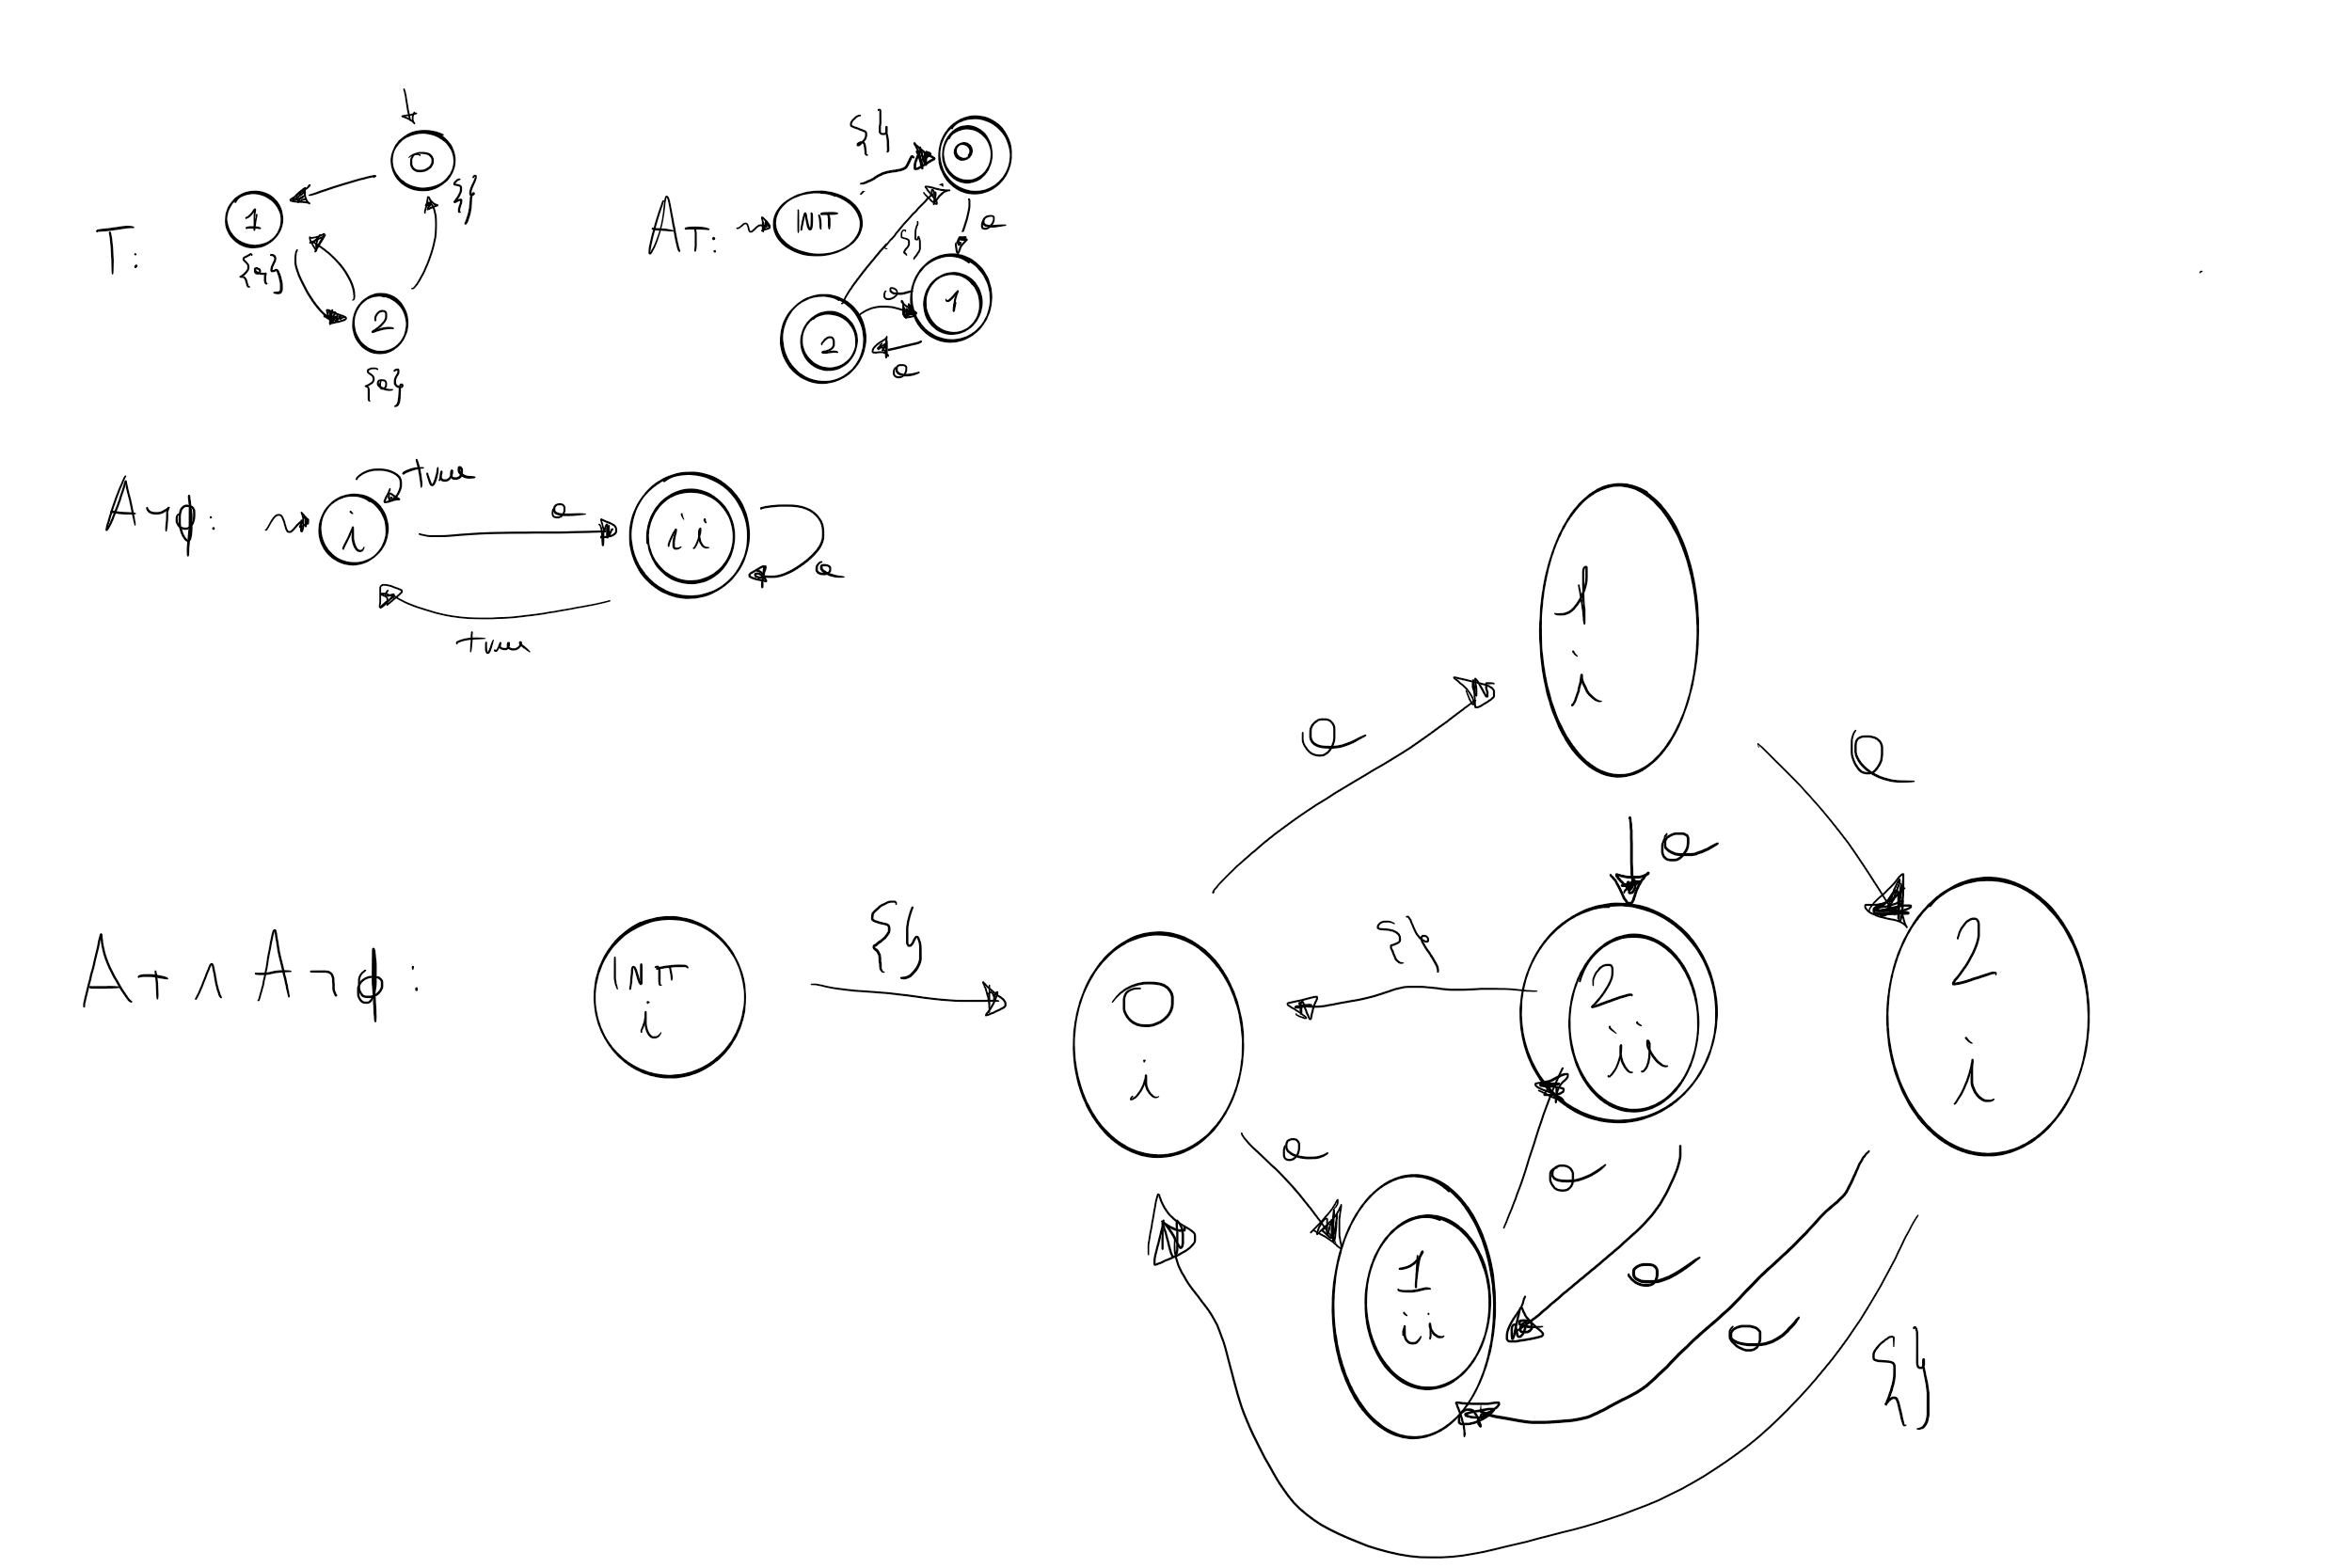 T:
0
{}
1
{a}
2
{a}
AT:
INIT
{}
0
a
{}
1
a
2
a
A¬φ:
i
true
a
ii
a
true
AT ∩ A¬φ:
INIT
i
{}
0
i
a
1
i
a
a
{}
2
ii
2
i
a
1
ii
a
a
a
{}